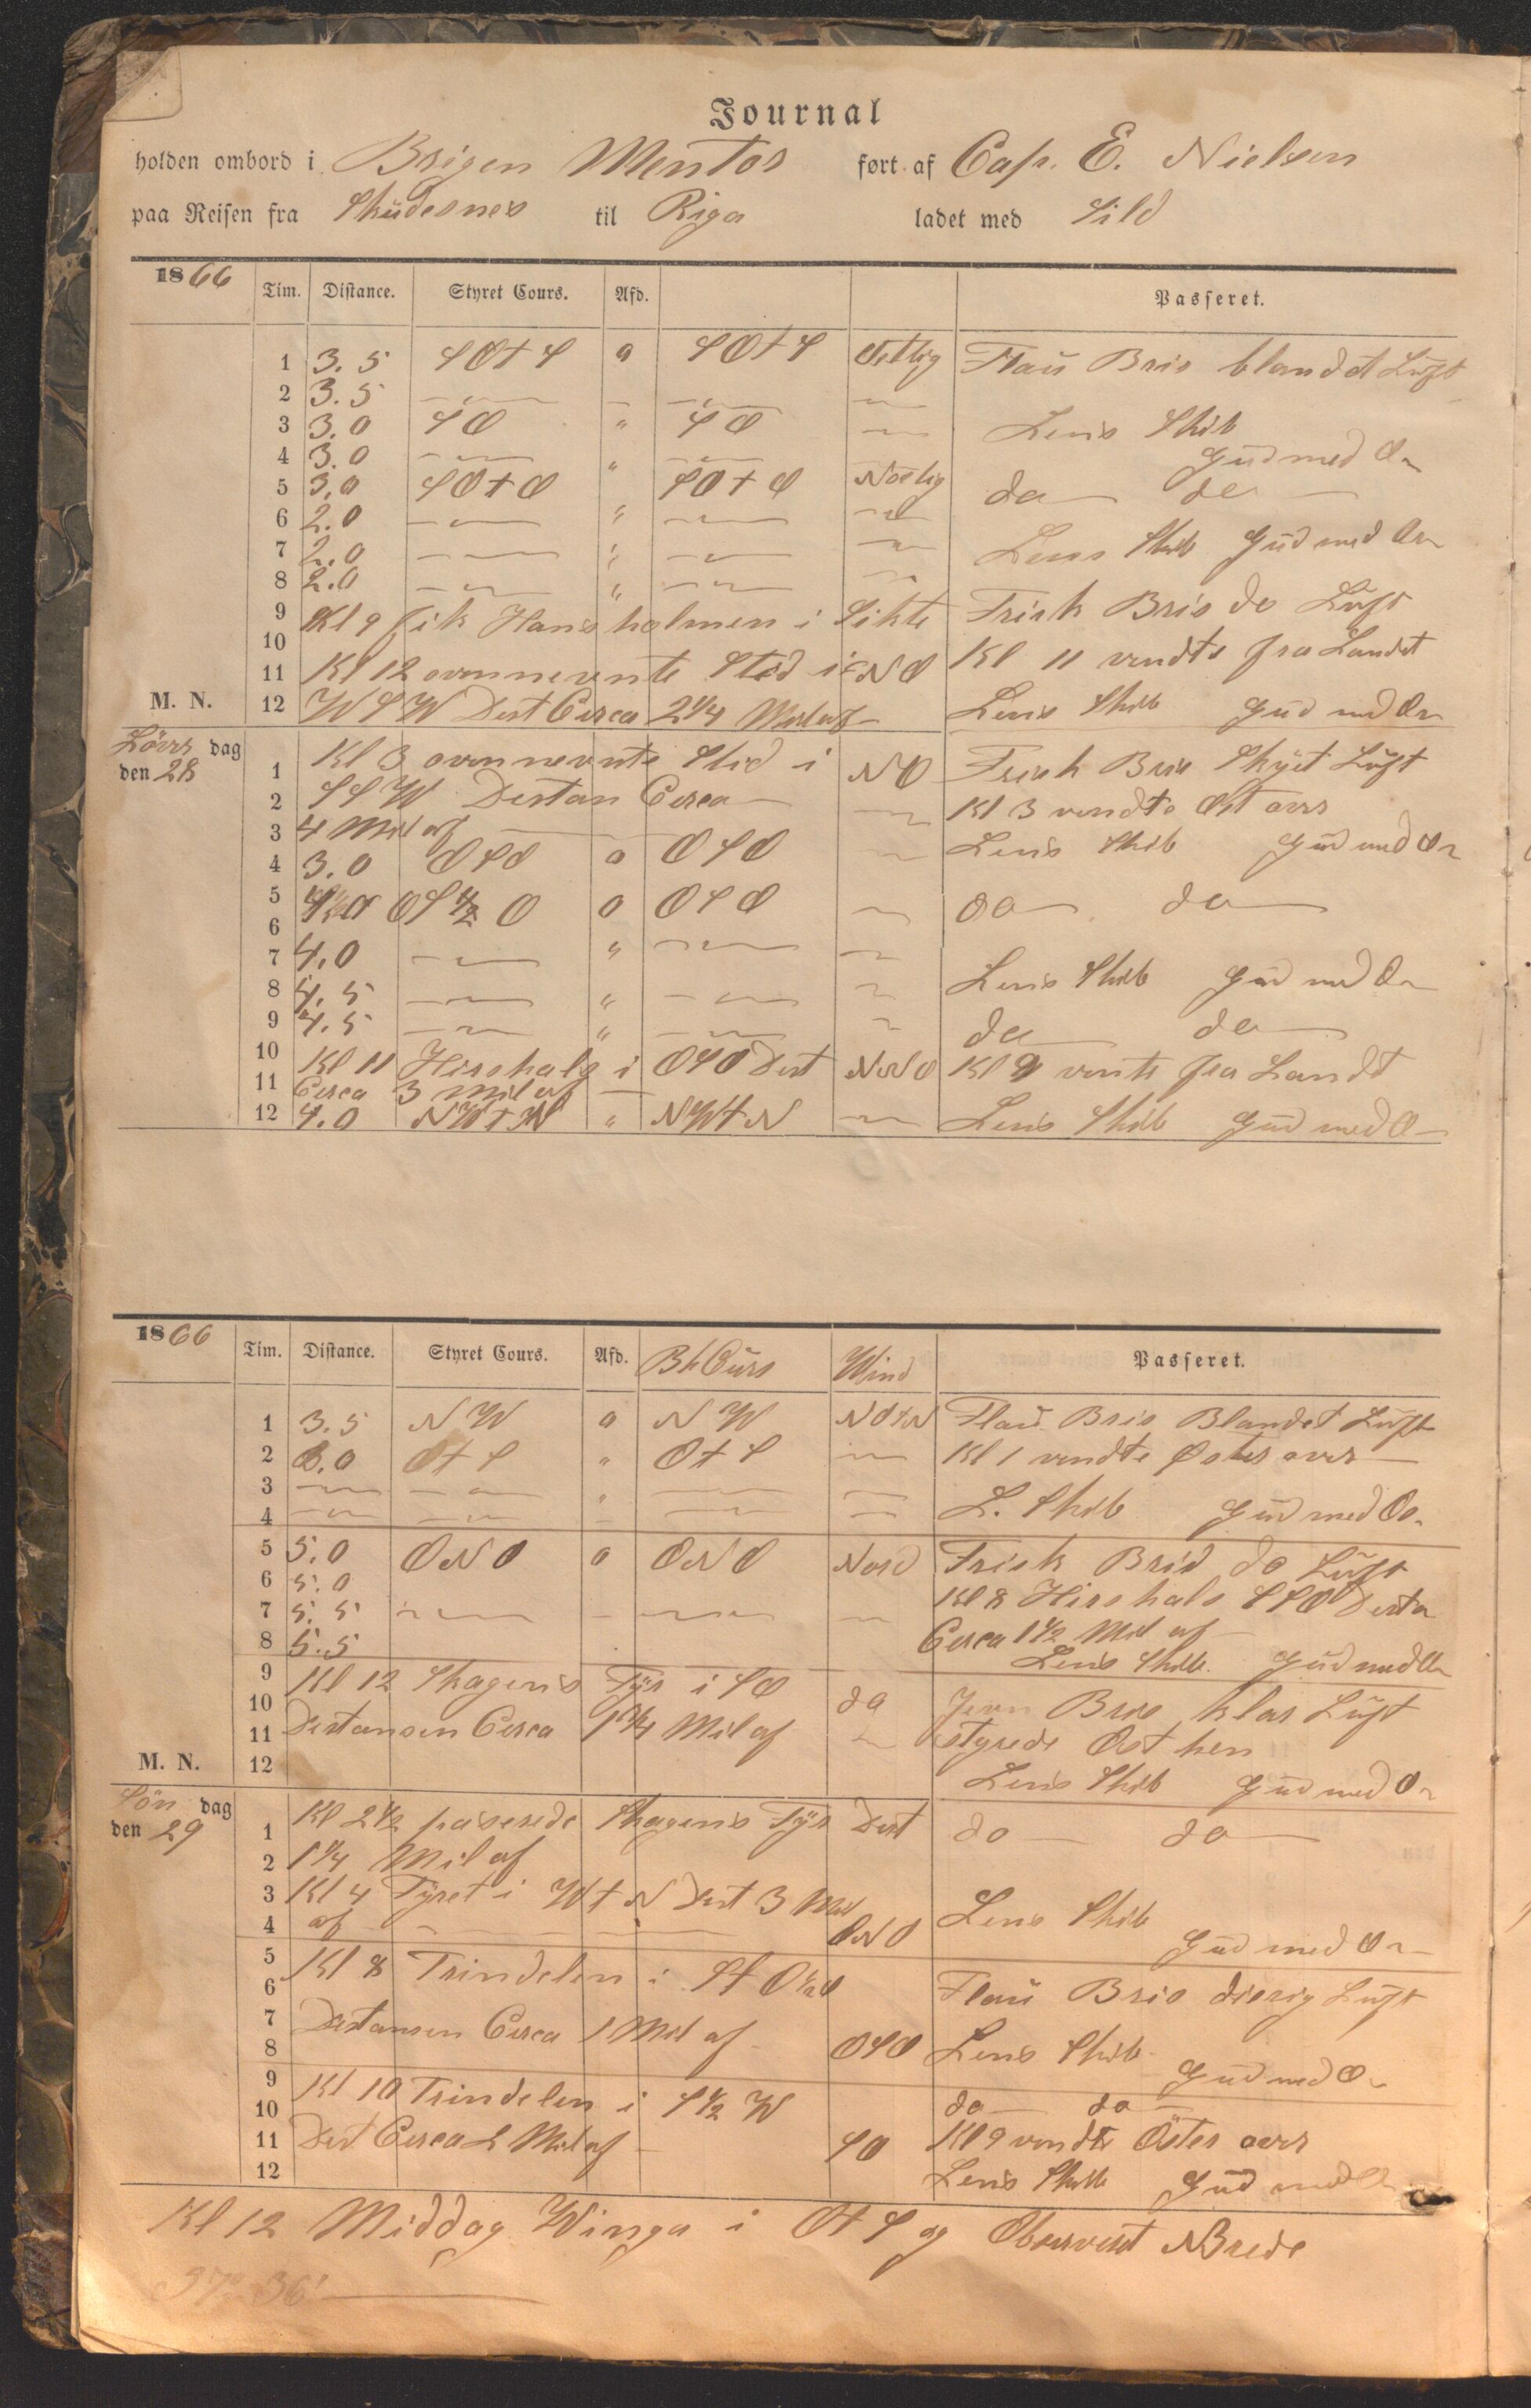 Journal
holden ombord i Brigen Mentor ført af Cap. E. Nielsen
paa Reisen fra Skudesnes til Riga ladet med Sild
1866 Tim. Distance. Styret Cours. Afd. Passeret.
1 3.5 SOtS 0 SOtS Vestlig Flau Bris blandet Luft
2 3.5
3 3.0 SO " SO Lens Skib
4 3.0 " Gud med Os
5 3.0 SOtO " SOtO Nordlig do do
6 2.0 "
7 2.0 " Lens Skib Gud med Os
8 2.0 "
9 Kl 9 fik Hansholmen i Sikte Frisk Bris do Luft
10
11 Kl 12 ovennevnte Sted i NO Kl 11 vendte fra Landet
M. N. 12 WSW Dist Circa 2 1/4 Mil af Lens Skib Gud med Os
Löver dag
den 28
1 Kl 3 ovennevnte Sted i NO Frisk Bris Skyet Luft
2 SSW Distan Circa Kl 3 vendte Ost over
3 4 Mil af Lens Skib Gud med Os
4 3.0 OSO 0 OSO
5 OS 1/2 O 0 OSO do do
6
7 4.0 "
8 4.5 " Lens Skib Gud med Os
9 4.5 " do do
10 Kl 11 Hirshals i OSO Dist NNO Kl 9 vente fra Landt
11 Circa 3 Mil af
12 4.0 NWtN " NWtN Lens Skib Gud med Os
1866 Tim. Distance. Styret Cours. Afd. Bh Curs Wind Passeret.
1 3.5 NW 0 NW NOtN Flau Bris Blandet Luft
2 3.0 OtS " OtS Kl 1 vendte Øster over
3 " L. Skib Gud med Os
4
5 5.0 ONO 0 ONO Nord Frisk Bris do Luft
6 5.0 Kl 8 Hirshals SSO Dista
7 5.5 Circa 1 1/2 Mil af
8 5.5 Lens Skib Gud med Os
9 Kl 12 Skagens Fyr i SO do Jevn Bris klar Luft
10
11 Distansen Circa 1 3/4 Mil af styrede Ost hen
M. N. 12 Lens Skib Gud med Os
Sön dag
den 29
1 Kl 2 1/2 paserede Skagens Fyr Dist do do
2 1 1/4 Mil af
3 Kl 4 Fyret i WtN Dist 3 Mil Lens Skib
4 af ONO Gud med Os
5
6 Kl 8 Trindelen i StO 1/2 O Flau Bris diesig Luft
7 Distansen Circa 1 Mil af OSO Lens Skib
8 Gud med Os
9 Kl 10 Trindelen i S 1/2 W do do
10
11 Dist Circa 2 Mil af SO Kl 9 vendte Öster over
12 Lens Skib Gud med Os
Kl 12 Middag Winga i OtS og Observert NBrede
57° 36'